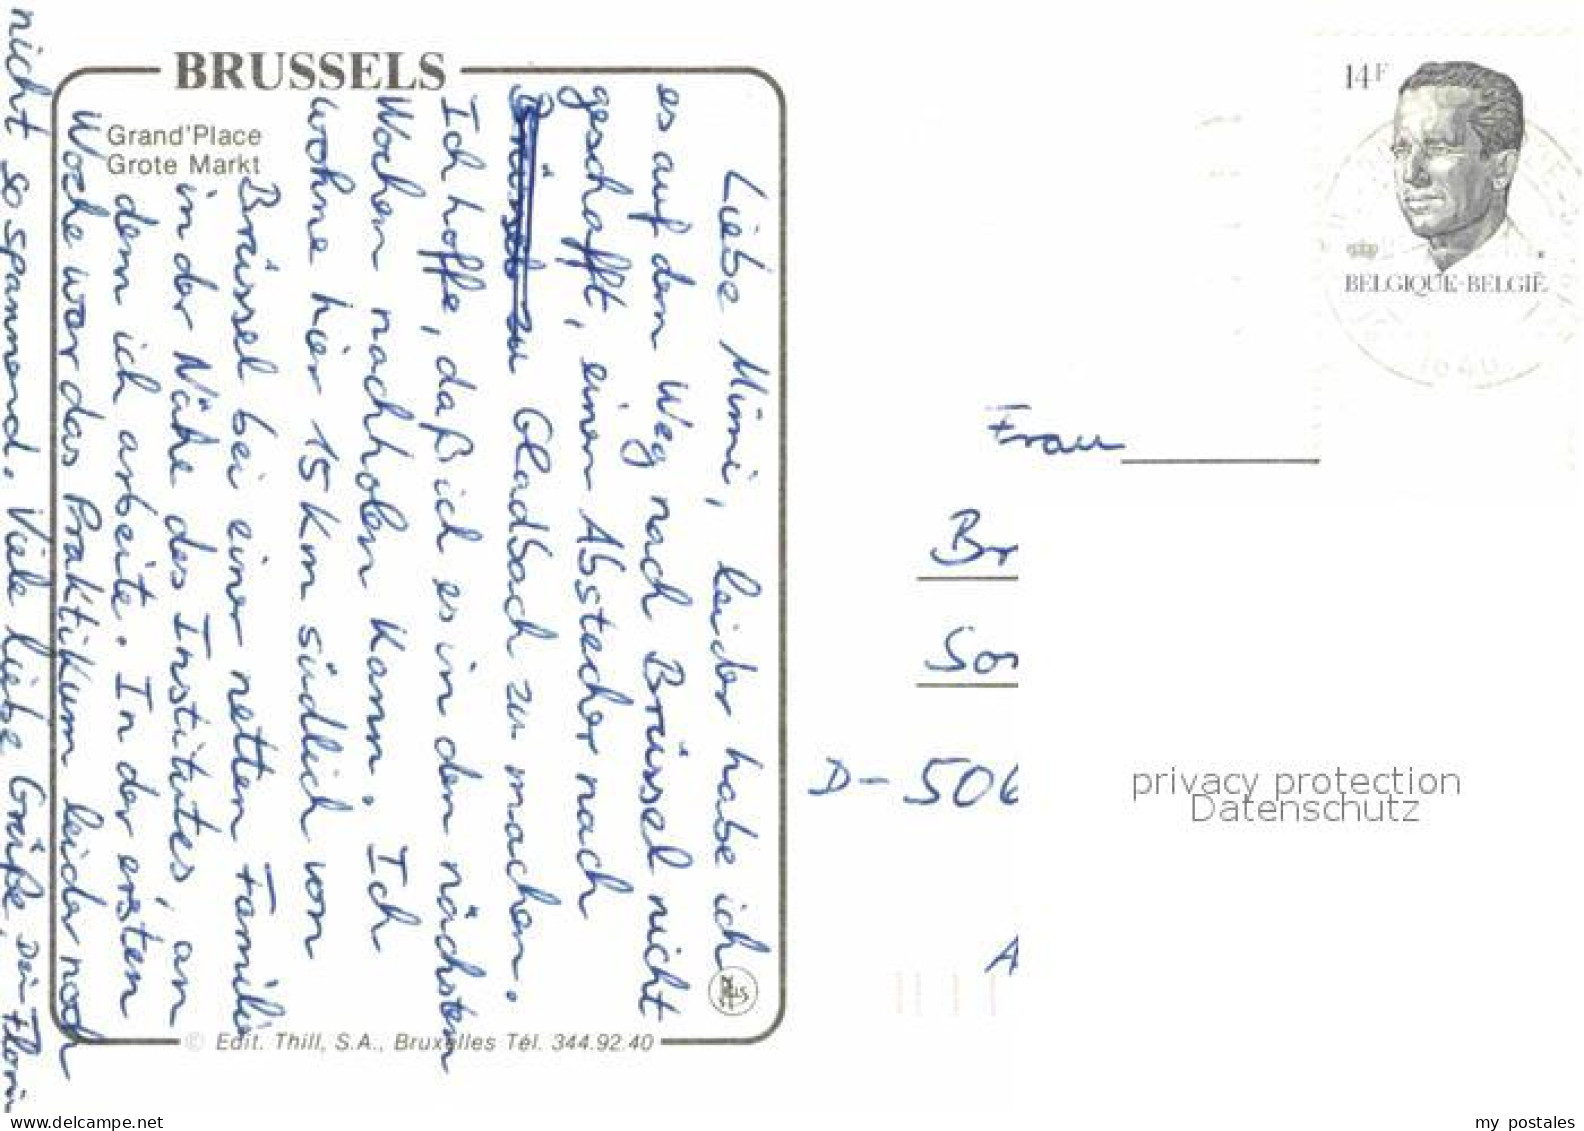 BRUSSELS
Grand'Place
Grote Markt
Liebe Mimi, leider habe ich
es auf dem Weg nach Brüssel nicht
geschafft, einen Abstecher nach
Brüssel zu Gladbach zu machen.
Ich hoffe, daß ich es in den nächsten
Wochen nachholen kann. Ich
wohne hier 15 km südlich von
Brüssel bei einer netten Familie
in der Nähe des Institutes, an
dem ich arbeite. In der ersten
Woche war das Praktikum leider noch
nicht so spannend. Viele liebe Grüße, Dein Florian
© Edit. Thill, S.A., Bruxelles Tél. 344.92.40
14F
BELGIQUE-BELGIË
1040
Frau
Br
Sor
D-506
A
privacy protection
Datenschutz
www.delcampe.net
my postales